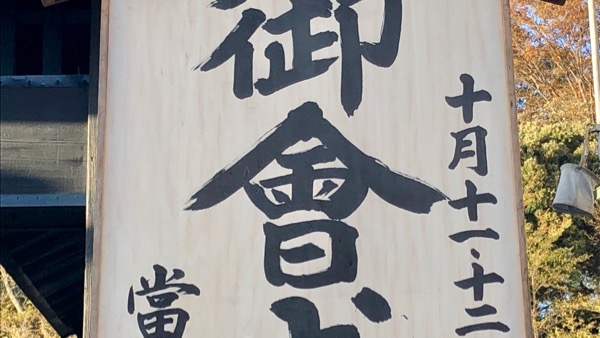 十月十一・十二
御會
當